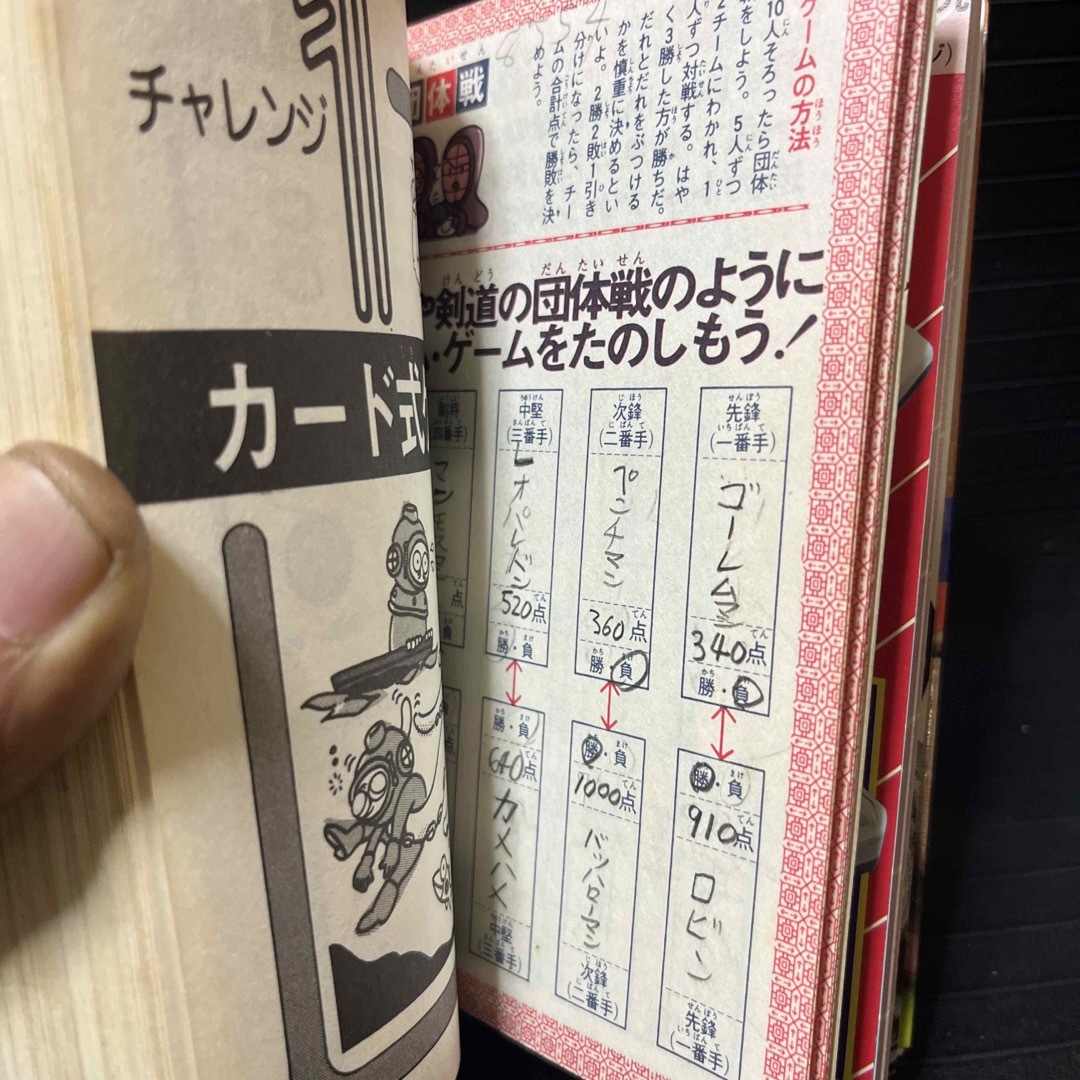 チャレンジ
カード式
ゲームの方法
10人そろったら団体
をしよう。5人ずつ
2チームにわかれ、1
人ずつ対戦する。はや
く3勝した方が勝ちだ。
だれとだれをぶつける
かを慎重に決めるとい
いよ。2勝2敗1引き
分けになったら、チー
ムの合計点で勝敗を決
めよう。
団体戦
剣道の団体戦のように
・ゲームをたのしもう!
先鋒
(一番手)
ゴーレムマン
340点
勝・負
勝・負
910点
ロビン
先鋒
(一番手)
次鋒
(二番手)
プンチマン
360点
勝・負
勝・負
1000点
バッハローマン
次鋒
(二番手)
中堅
(三番手)
レオパルドン
520点
勝・負
勝・負
640点
カメハメ
中堅
(三番手)
副将
点